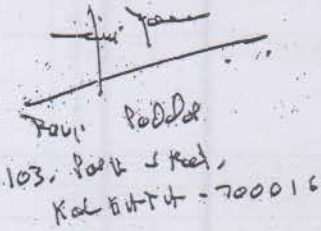 Ravi Poddar
103, Park Street,
Kolkata - 700016